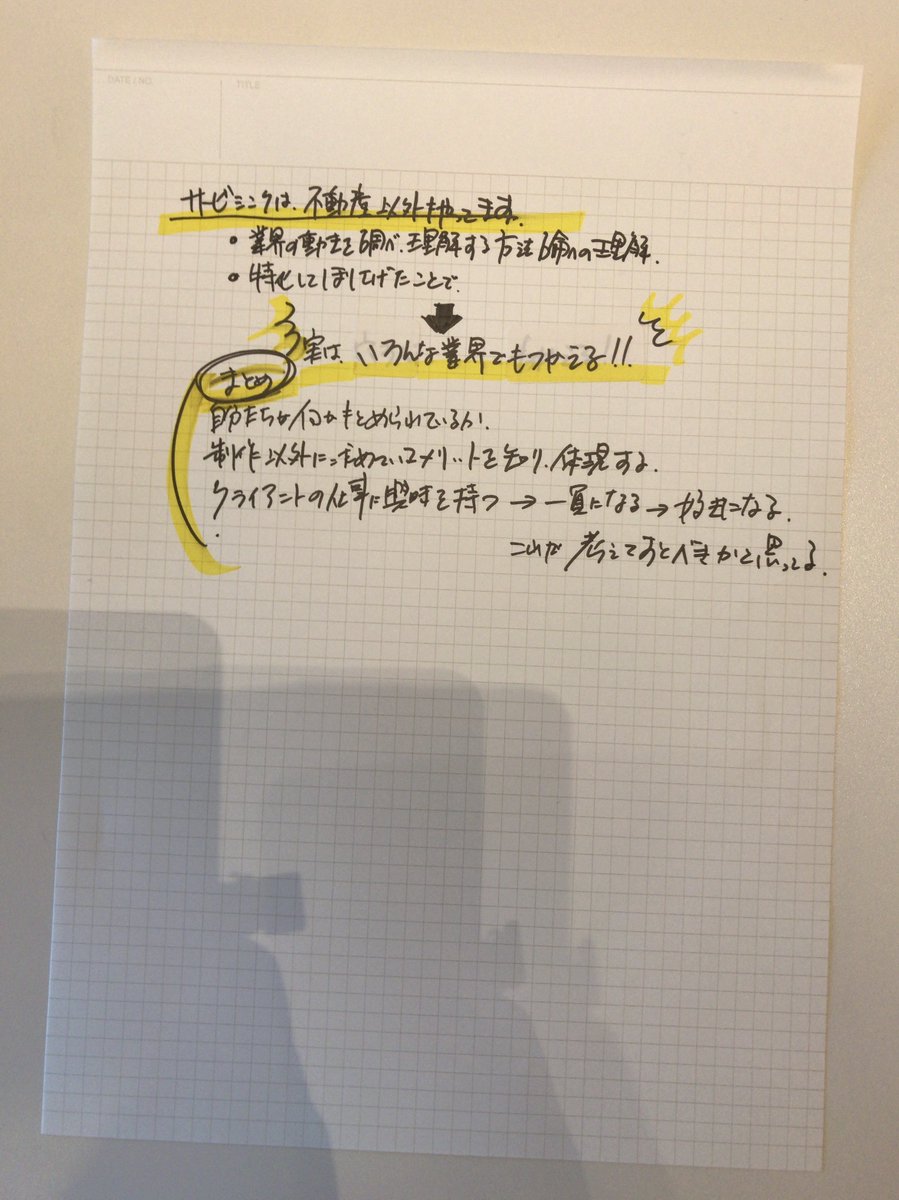 DATE / NO.
TITLE
サービシンクは、不動産以外もやってます。
・業界の動きを調べ、理解する方法論への理解.
・特化してほり下げたことで
実は、いろんな業界でもつかえる!!
まとめ
自分たちが何かもとめられているか.
制作以外に求めているメリットを知り、体現する.
クライアントの仕事に興味を持つ → 一員になる → 好きになる.
これが 考えておくべきかと思ってる.